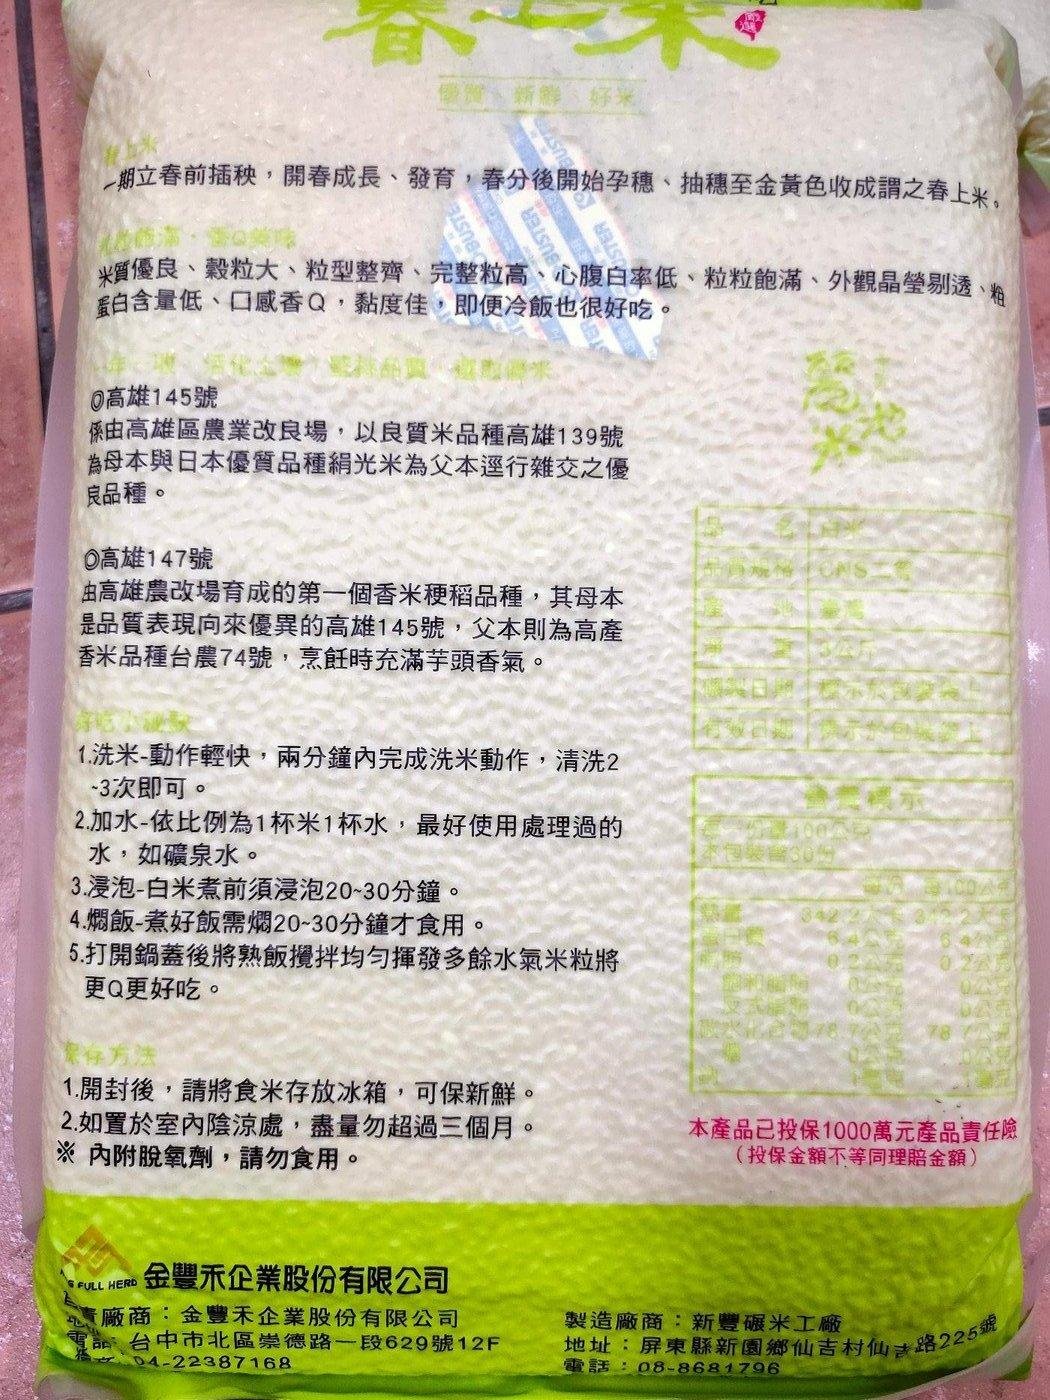 春上米
嚴選
優質、新鮮、好米
春上米
一期立春前插秧，開春成長、發育，春分後開始孕穗、抽穗至金黃色收成謂之春上米。
米質優良、穀粒大、粒型整齊、完整粒高、心腹白率低、粒粒飽滿、外觀晶瑩剔透、粗
蛋白含量低、口感香Q，黏度佳，即便冷飯也很好吃。
◎高雄145號
係由高雄區農業改良場，以良質米品種高雄139號
為母本與日本優質品種絹光米為父本逕行雜交之優
良品種。
◎高雄147號
由高雄農改場育成的第一個香米稉稻品種，其母本
是品質表現向來優異的高雄145號，父本則為高產
香米品種台農74號，烹飪時充滿芋頭香氣。
1.洗米-動作輕快，兩分鐘內完成洗米動作，清洗2
~3次即可。
2.加水-依比例為1杯米1杯水，最好使用處理過的
水，如礦泉水。
3.浸泡-白米煮前須浸泡20~30分鐘。
4.燜飯-煮好飯需燜20~30分鐘才食用。
5.打開鍋蓋後將熟飯攪拌均勻揮發多餘水氣米粒將
更Q更好吃。
保存方法
1.開封後，請將食米存放冰箱，可保新鮮。
2.如置於室內陰涼處，盡量勿超過三個月。
※ 內附脫氧劑，請勿食用。
品名 白米
品質規格 CNS二等
產地 臺灣
淨重 3公斤
碾製日期 標示於包裝袋上
有效日期 標示於包裝袋上
營養標示
每一份量100公克
本包裝含30份
每份 每100公克
熱量
0.2公克 0.2公克
飽和脂肪 0公克 0公克
反式脂肪 0公克 0公克
碳水化合物 78.7公克 78.7公克
糖 0公克 0公克
本產品已投保1000萬元產品責任險
（投保金額不等同理賠金額）
FULL HERD 金豐禾企業股份有限公司
責廠商：金豐禾企業股份有限公司
台中市北區崇德路一段629號12F
電話：04-22387168
製造廠商：新豐碾米工廠
地址：屏東縣新園鄉仙吉村仙吉路225號
電話：08-8681796